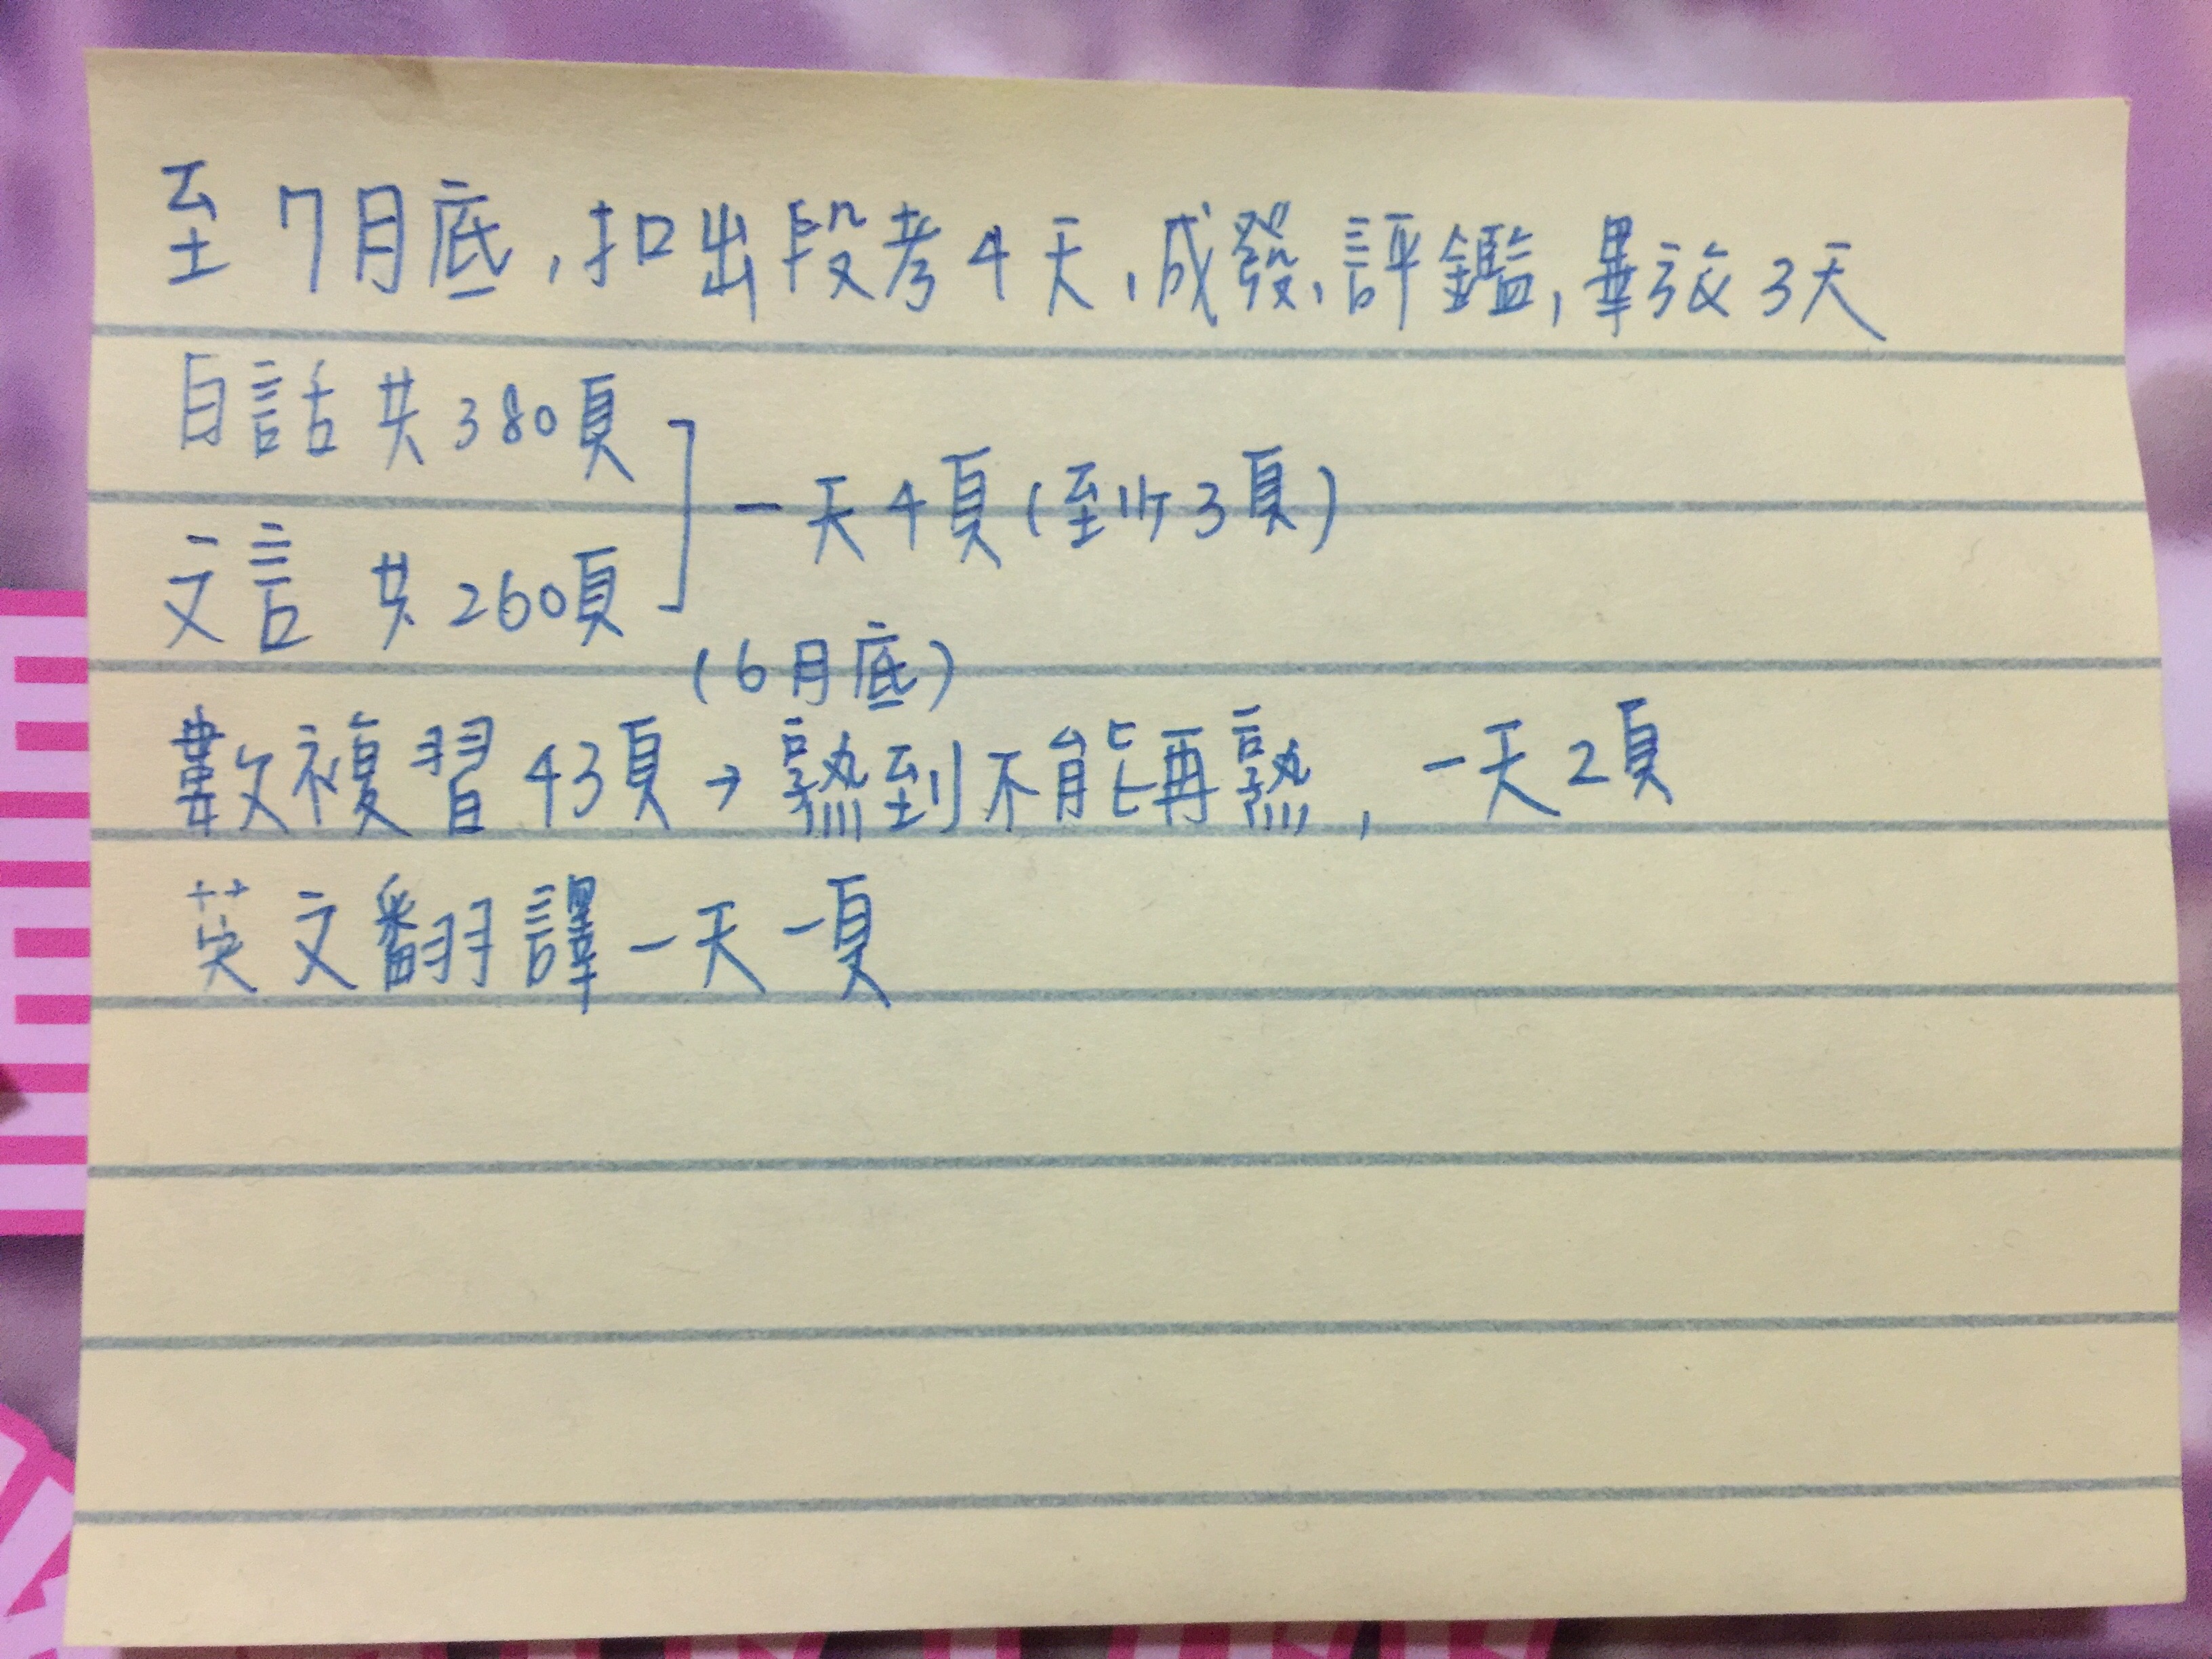 至7月底,扣出段考4天,成發,評鑑,畢旅3天
白話共380頁
一天4頁(至少3頁)
文言 共260頁
(6月底)
數複習43頁→熟到不能再熟,一天2頁
英文翻譯一天一頁